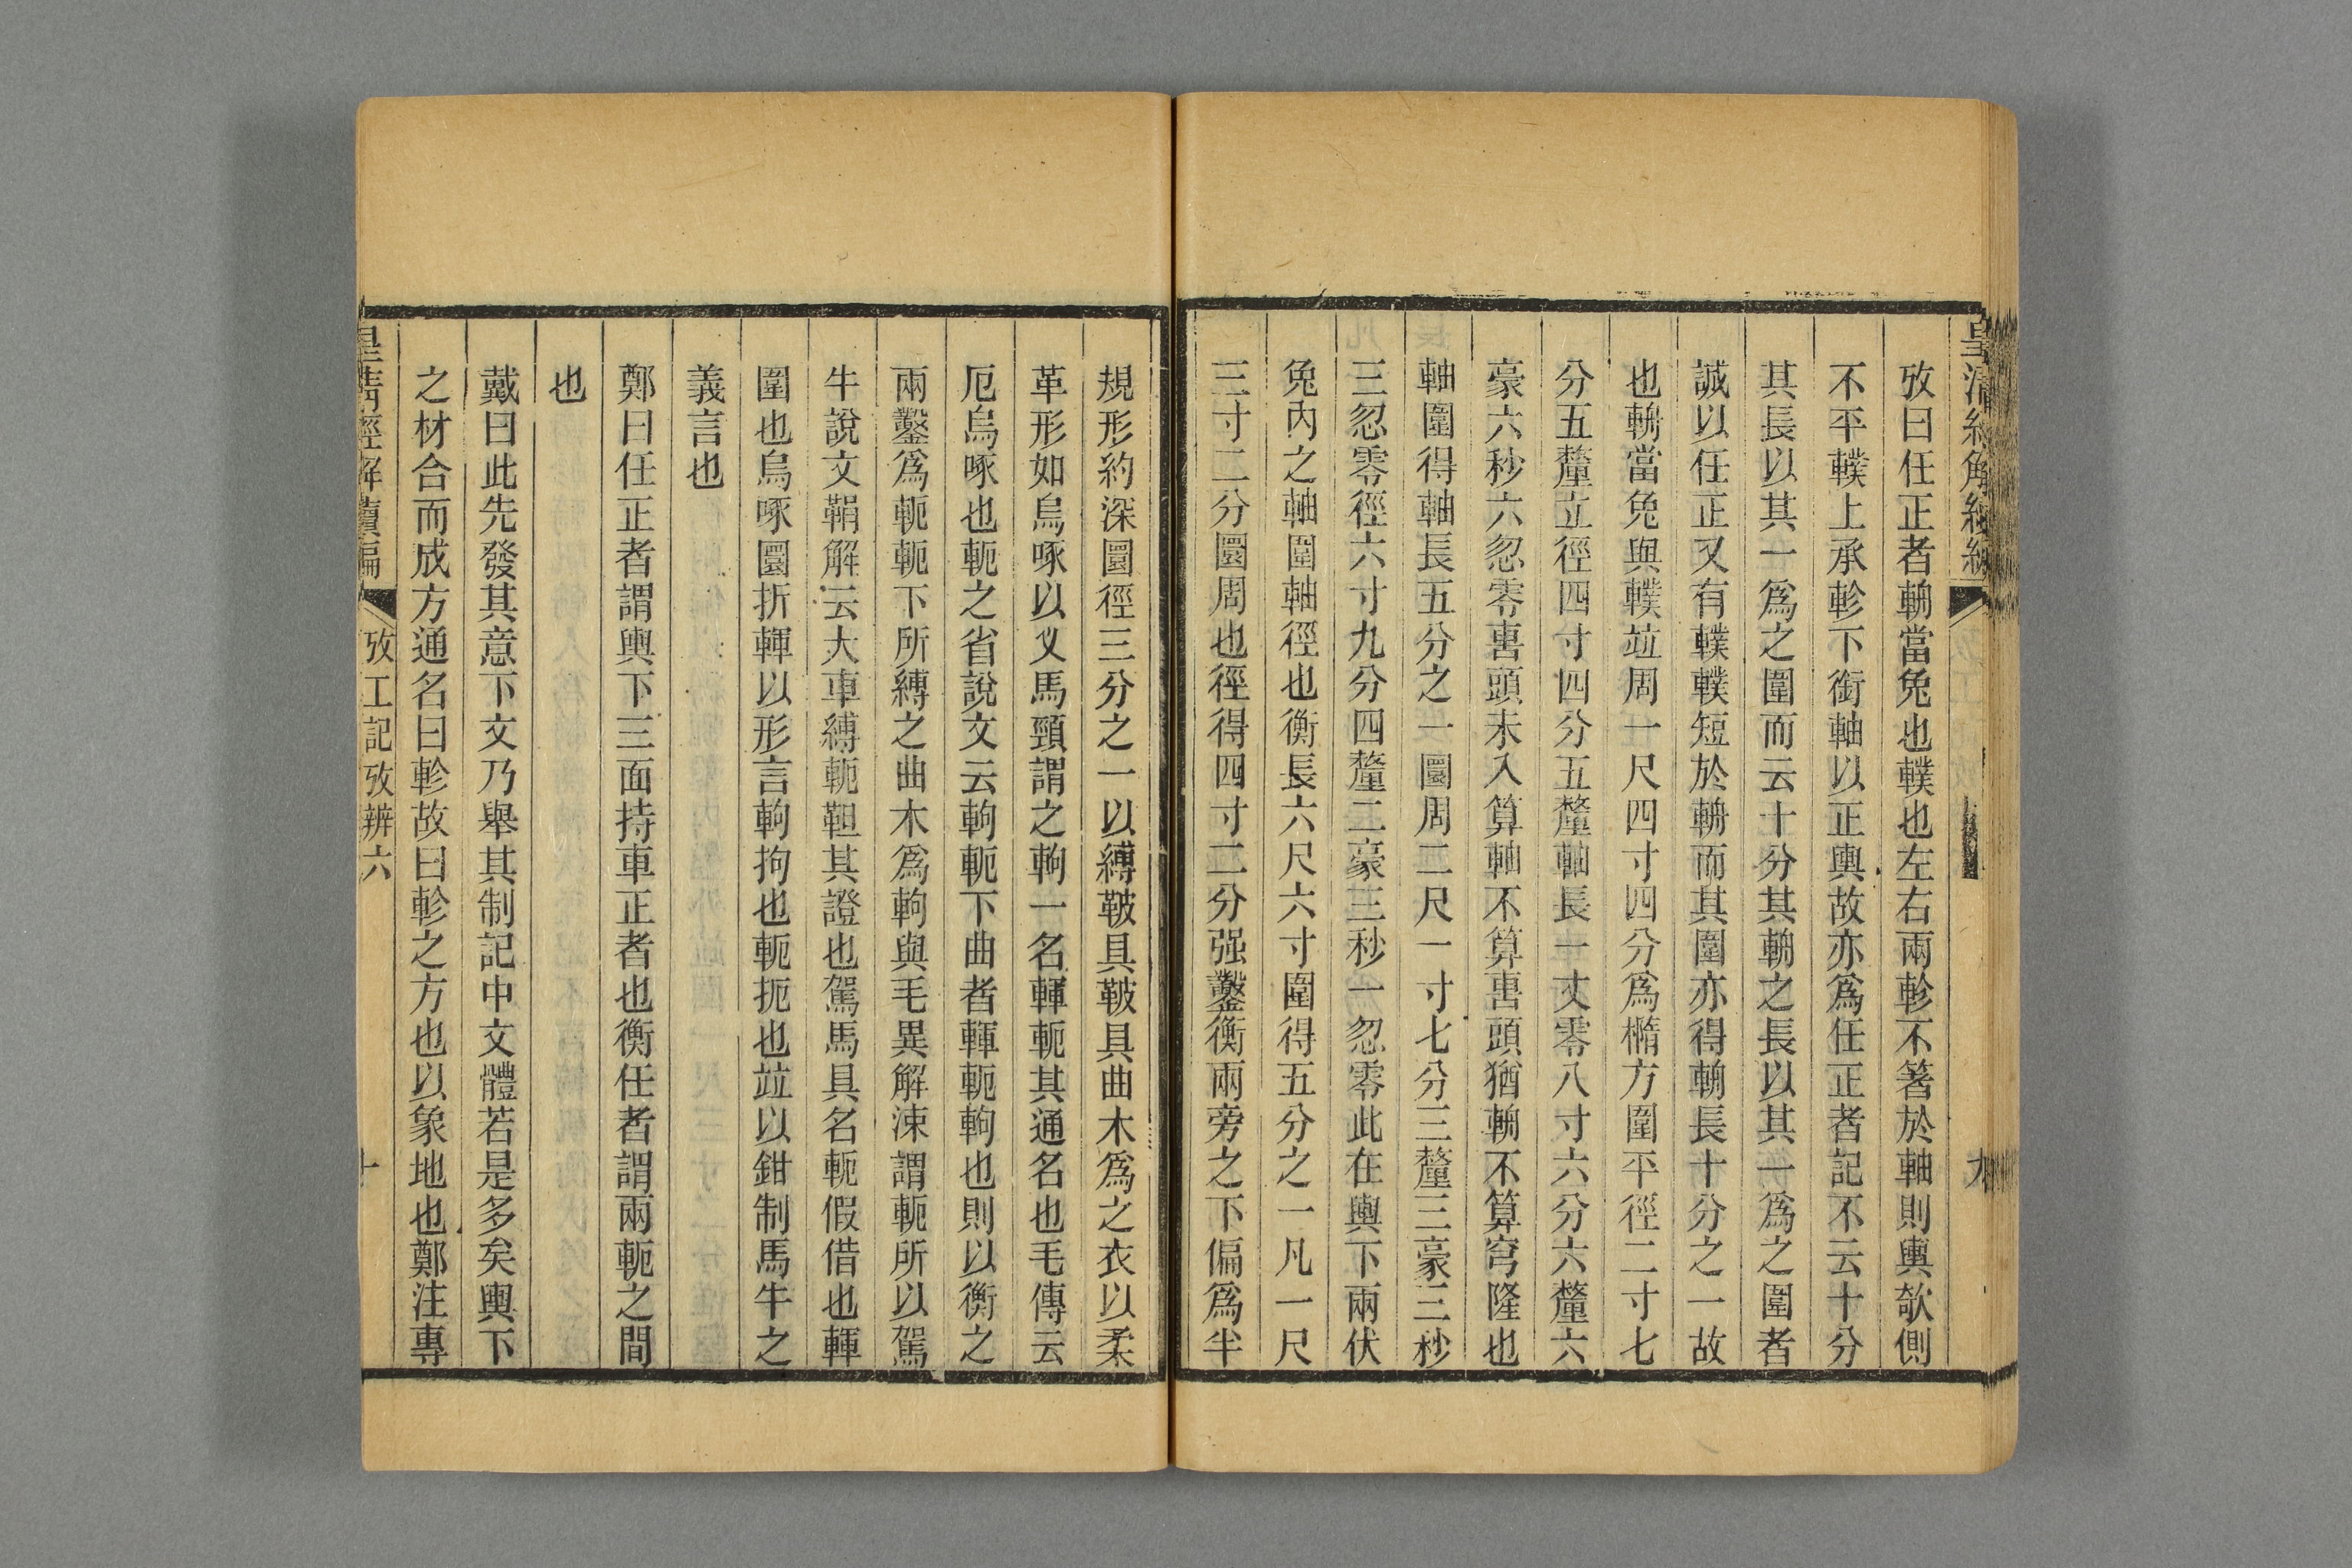 皇清經解續編
九
攷曰任正者輈當兔也轐也左右兩軫不箸於軸則輿欹側
不平轐上承軫下銜軸以正輿故亦爲任正者記不云十分
其長以其一爲之圍而云十分其輈之長以其一爲之圍者
誠以任正又有轐轐短於輈而其圍亦得輈長十分之一故
也輈當兔與轐竝周一尺四寸四分爲橢方圍平徑二寸七
分五釐立徑四寸四分五釐軸長一丈零八寸六分六釐六
豪六秒六忽零軎頭未入算軸不算軎頭猶輈不算穹隆也
軸圍得軸長五分之一圜周二尺一寸七分三釐三豪三秒
三忽零徑六寸九分四釐二豪三秒一忽零此在輿下兩伏
兔內之軸圍軸徑也衡長六尺六寸圍得五分之一凡一尺
三寸二分圜周也徑得四寸二分强鑿衡兩旁之下偏爲半
規形約深圜徑三分之一以縛鞁具鞁具曲木爲之衣以柔
革形如烏啄以叉馬頸謂之軥一名䡣軛其通名也毛傳云
厄烏啄也軛之省說文云軥軛下曲者䡣軛軥也則以衡之
兩鑿爲軛軛下所縛之曲木爲軥與毛異解涑謂軛所以駕
牛說文鞙解云大車縛軛靼其證也駕馬具名軛假借也䡣
圍也烏啄圜折䡣以形言軥拘也軛扼也竝以鉗制馬牛之
義言也
鄭曰任正者謂輿下三面持車正者也衡任者謂兩軛之間
也
戴曰此先發其意下文乃舉其制記中文體若是多矣輿下
之材合而成方通名曰軫故曰軫之方也以象地也鄭注專
皇清經解續編
攷工記攷辨六
十